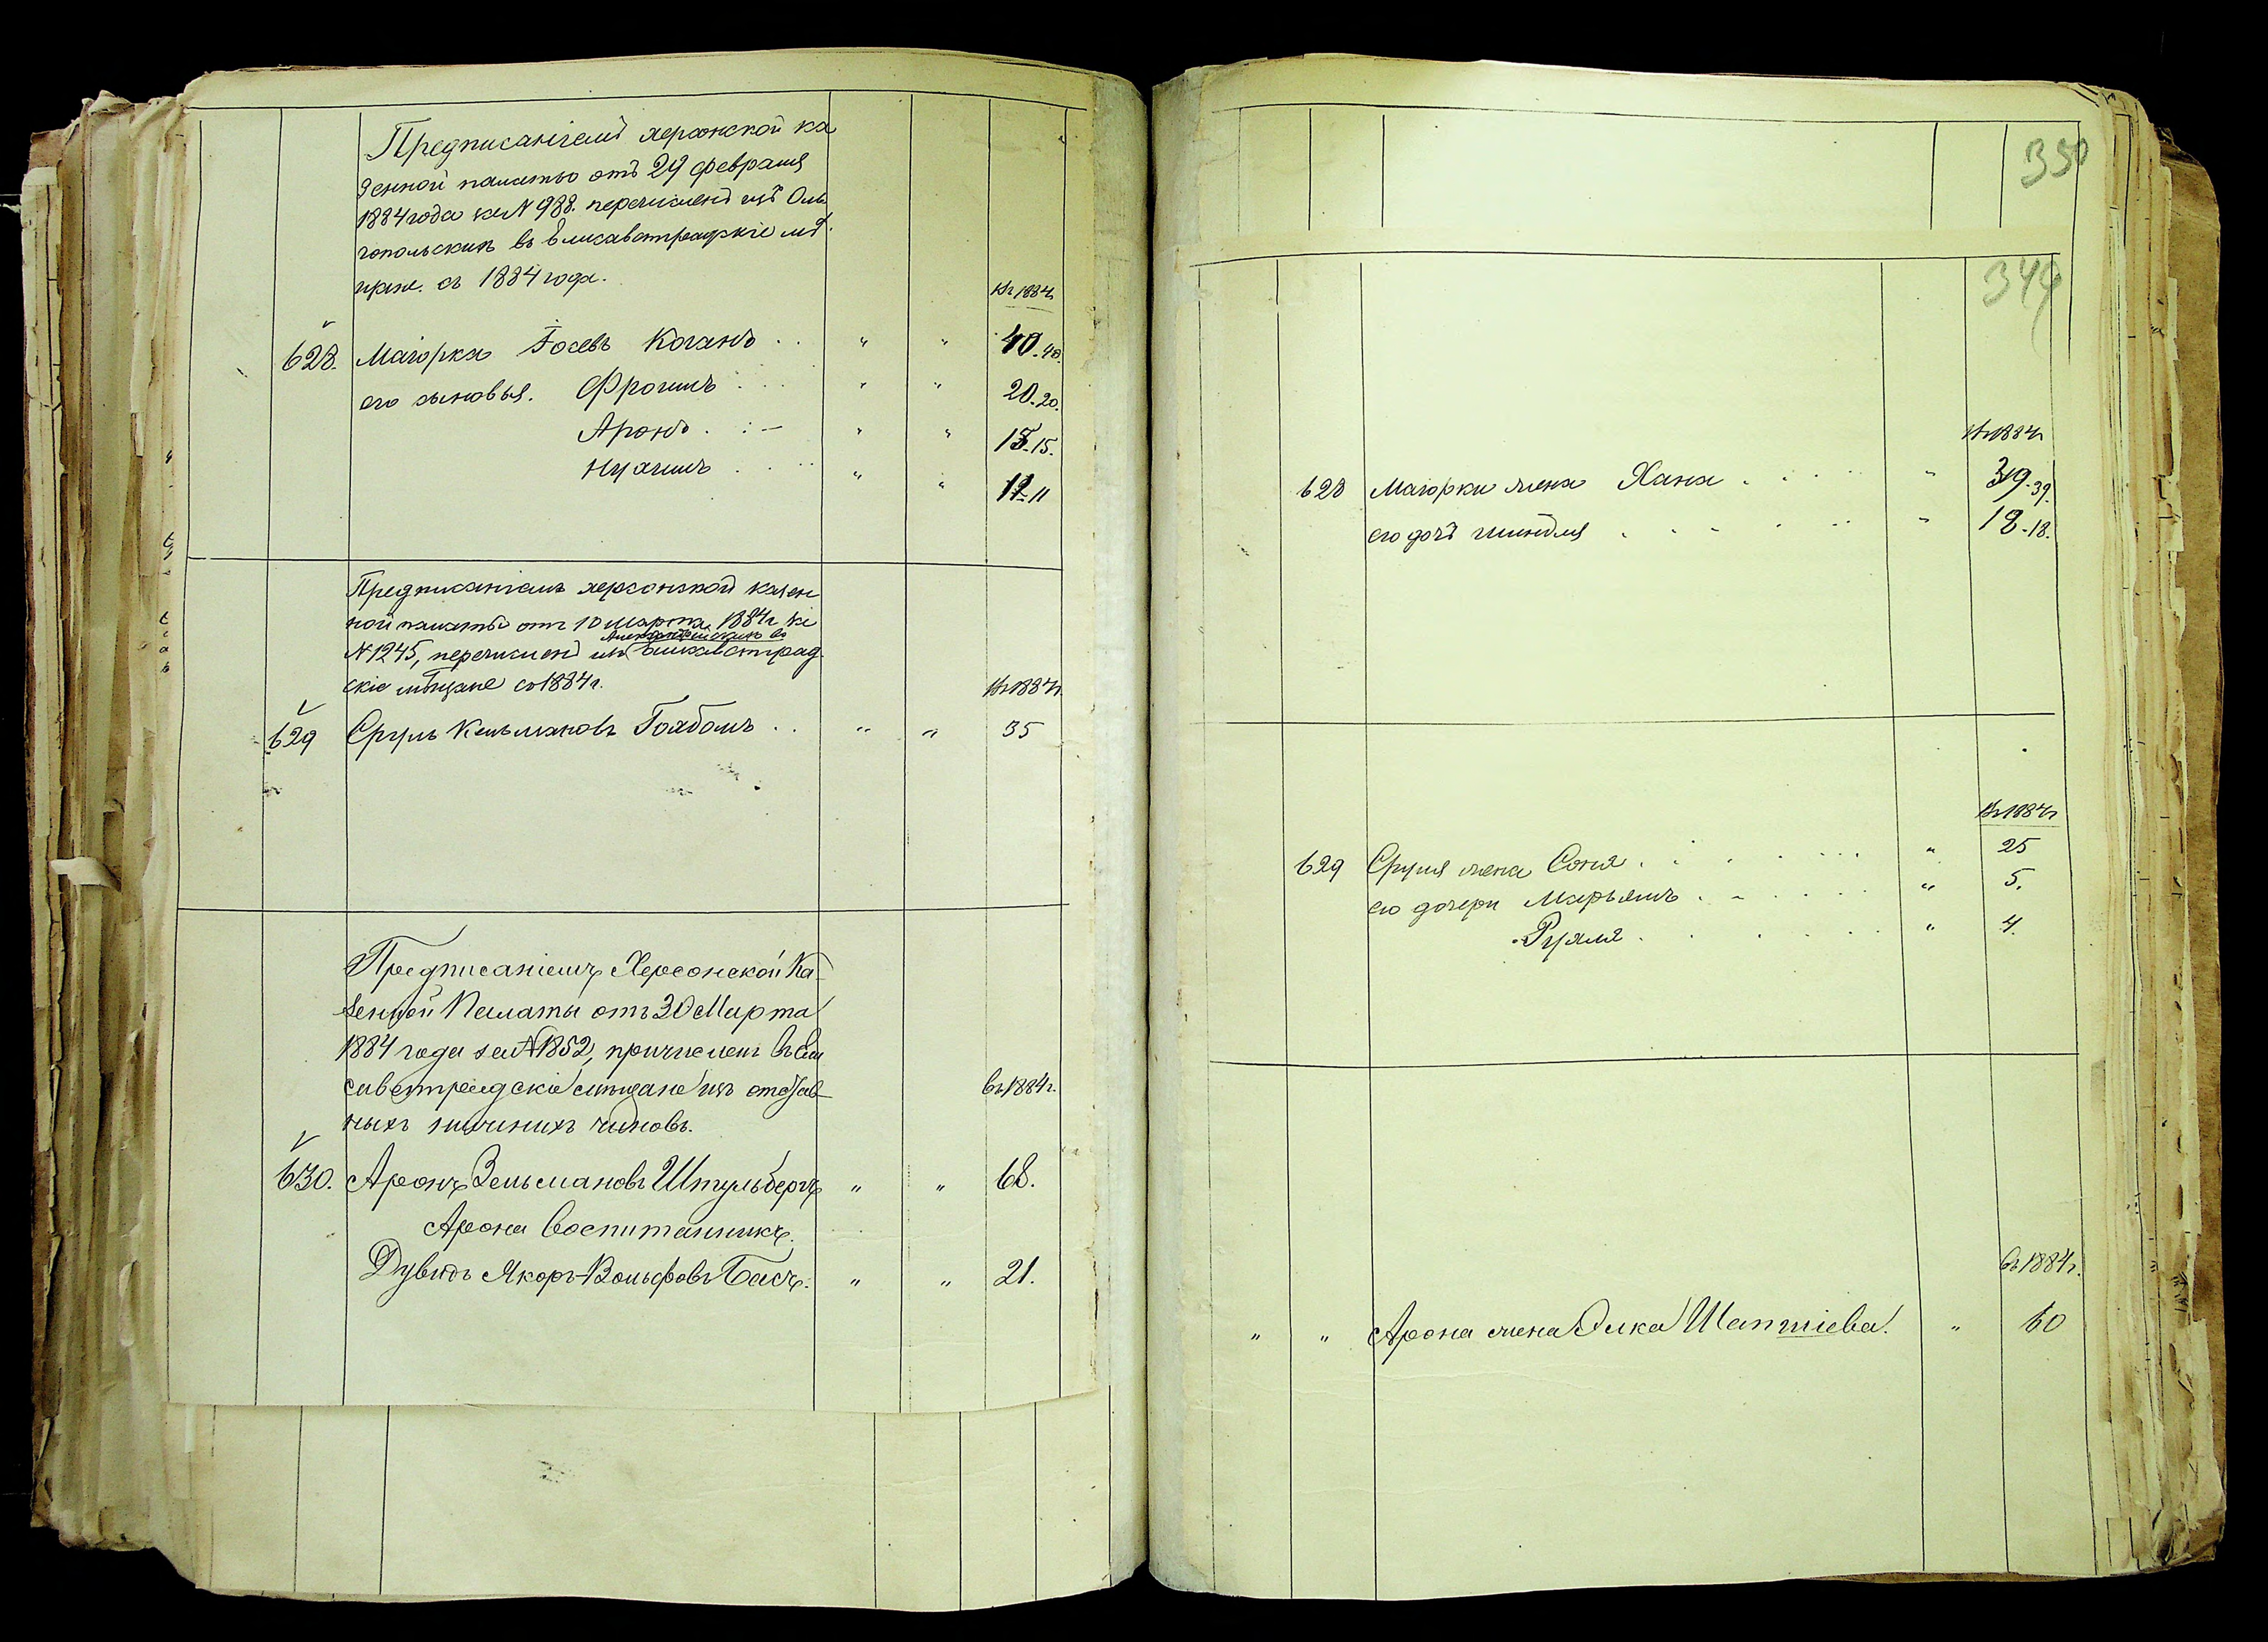 Предписаніемъ херсонской ка
зенной палаты отъ 29 февраля
1884 года за № 988. перечисленъ изъ Оль
гопольскихъ въ Елисаветградскіе мѣ
щане. съ 1884 года.
въ 1884 г
628. Маіорка Іосевъ Коганъ . . " " 40. 40.
его сыновья. Фроимъ . . . " " 20. 20.
Аронъ . . . " " 15. 15.
Нухимъ . . . " " 11. 11
Предписаніемъ херсонской казен
ной палаты отъ 10 марта 1884 г за
въ
№ 1245, перечисленъ изъ Елисаветград
скіе мѣщане со 1884 г.
въ 1884 г.
629 Сруль Кельмановъ Гольбамъ . . " " 35
Предписаніемъ Херсонской Ка
зенной Палаты отъ 30 Марта
1884 года за № 1852, причисленъ въ Ели
саветградскіе мѣщане изъ отстав
въ 1884 г.
ныхъ нижнихъ чиновъ.
630. Аронъ Зельмановъ Штульбергъ " " 68.
Арона Воспитанникъ
Дувидъ Якоръ-Вольфовъ Басъ. " " 21.
350
349
въ 1884 г
628 Маіорки жена Хана . . . " 39. 39.
его дочь Шиндля . . . " 18. 18.
въ 1884 г
629 Сруля жена Соня . . . . " 25
его дочери Марьямъ . . . . " 5.
Рухля . . . . " 4.
въ 1884 г.
" " Арона жена Элка Шапшіева. " 60